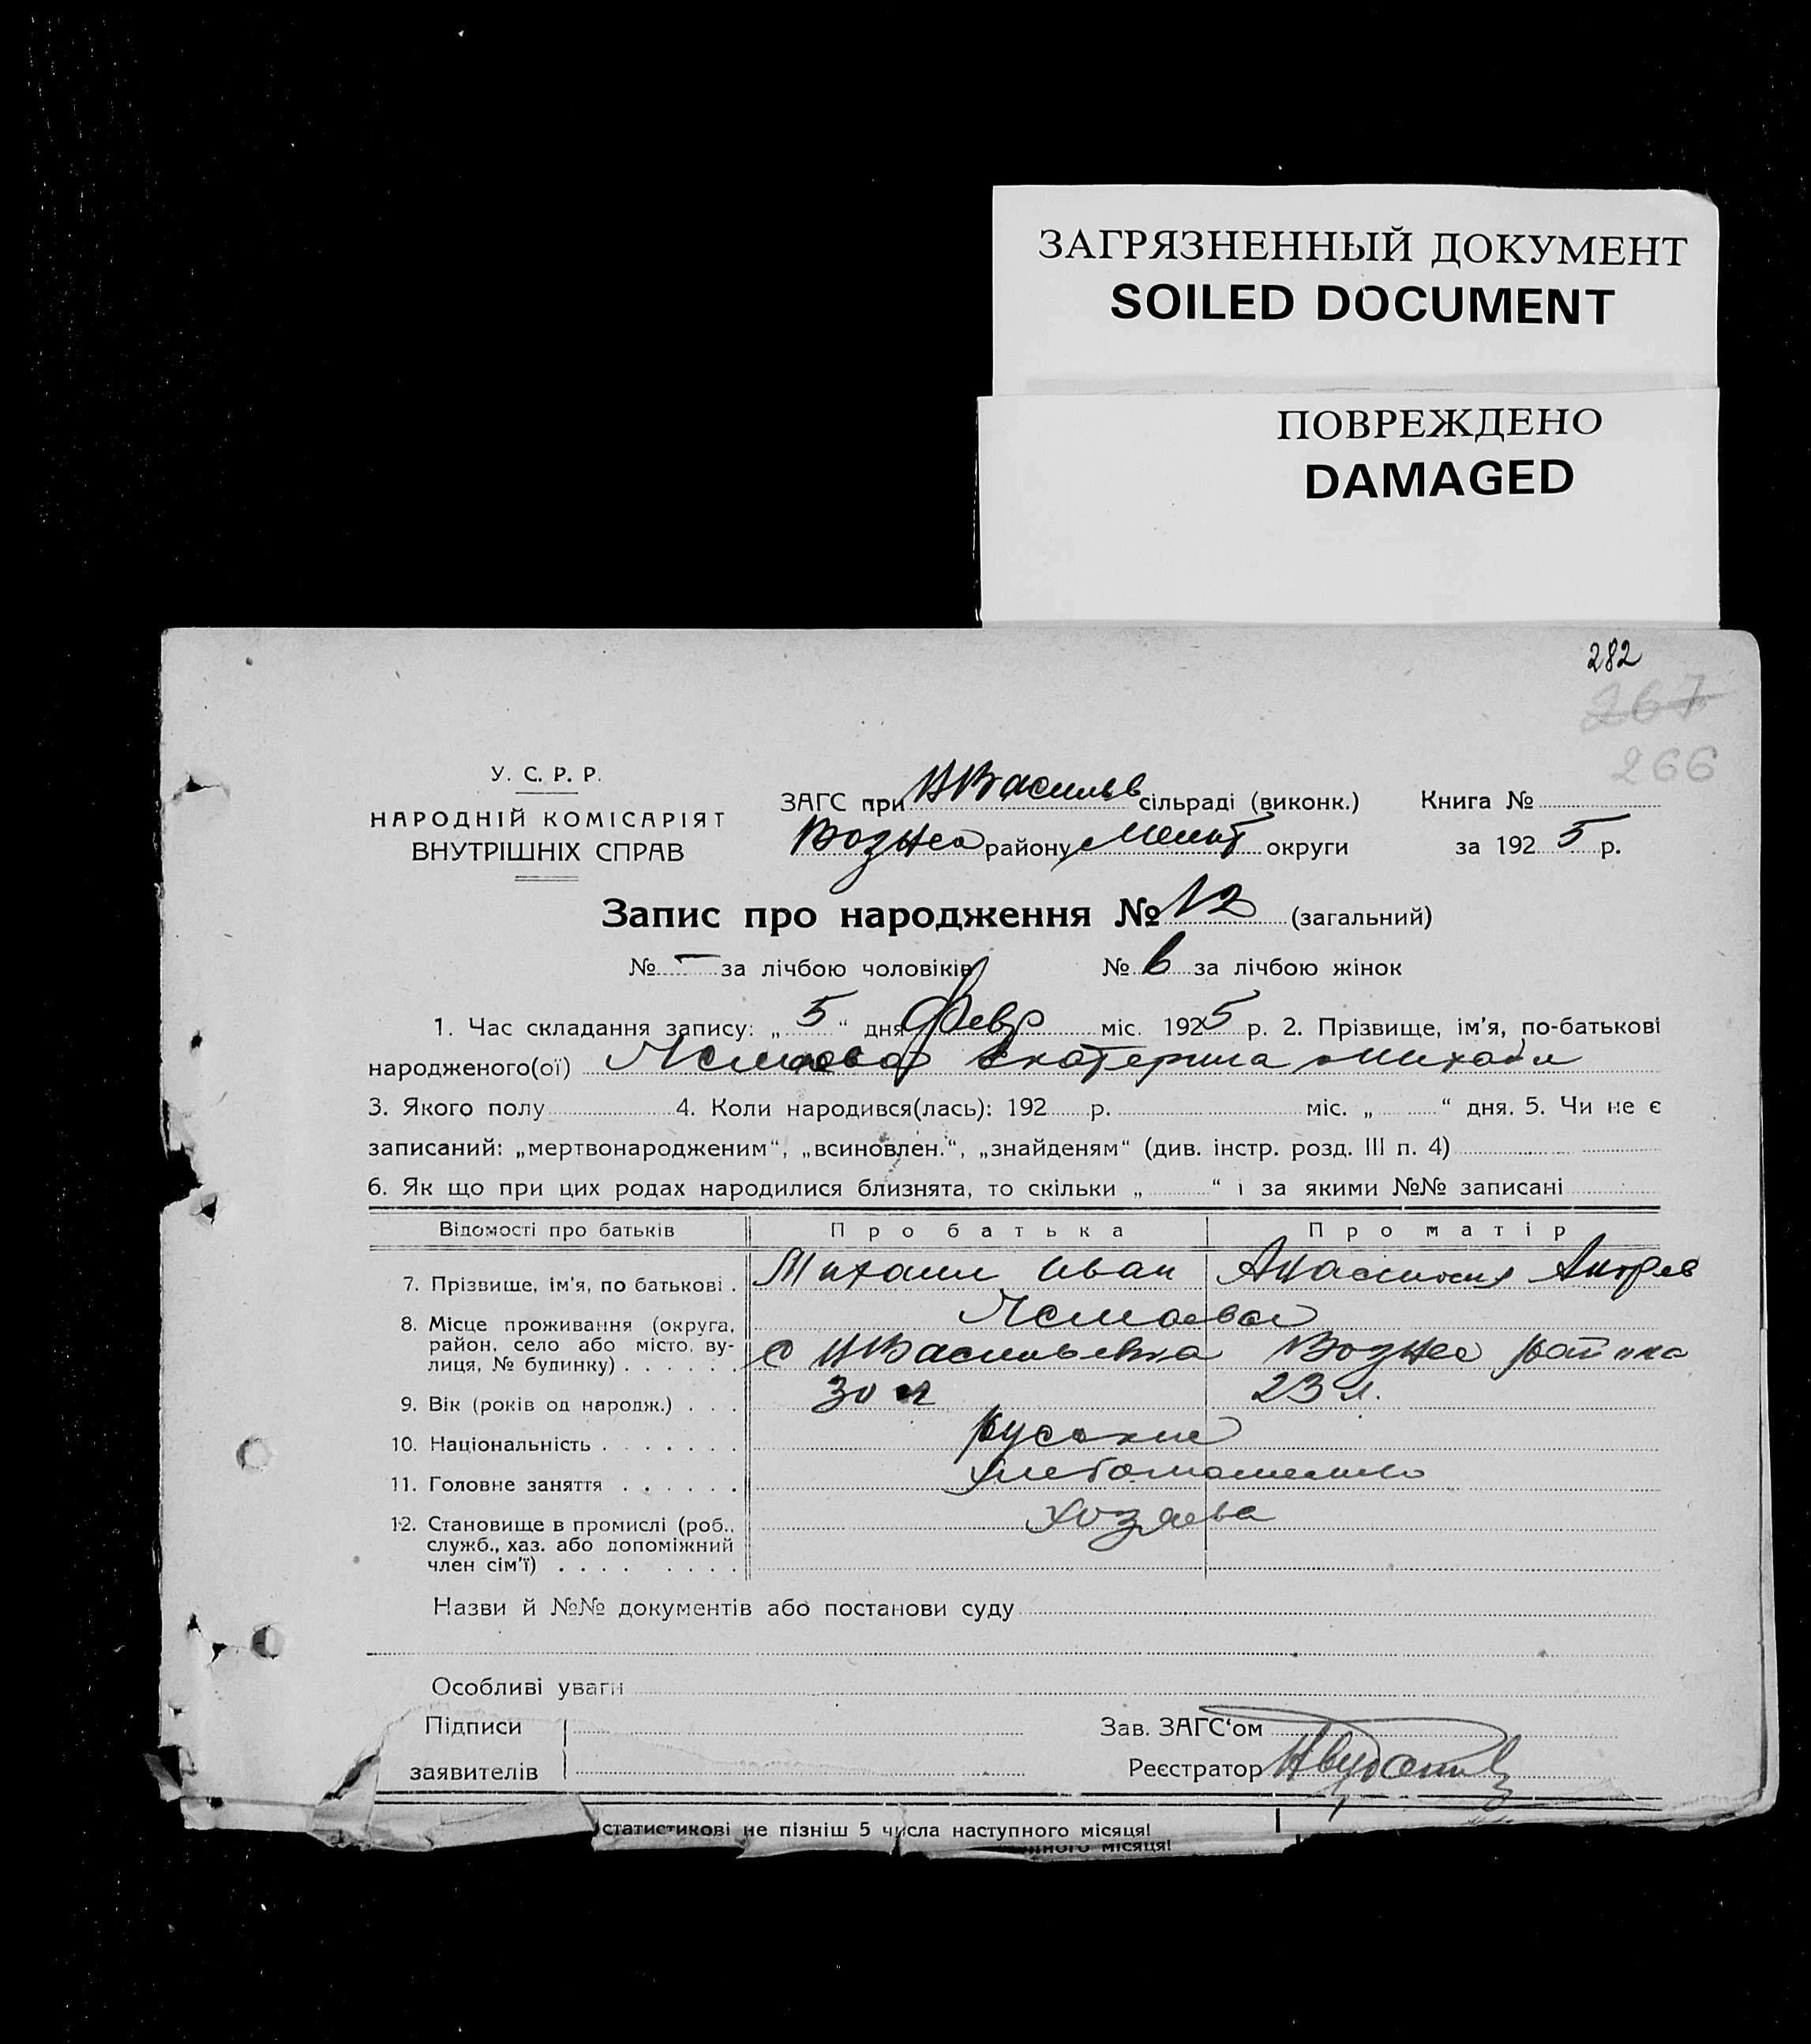 ЗАГРЯЗНЕННЫЙ ДОКУМЕНТ
SOILED DOCUMENT
ПОВРЕЖДЕНО
DAMAGED
282
267
266
У. С. Р. Р.
НАРОДНІЙ КОМІСАРІЯТ
ВНУТРІШНІХ СПРАВ
ЗАГС при НВасильв сільраді (виконк.) Книга №
Вознес району Мелит округи за 1925 р.
Запис про народження № 12 (загальний)
№ – за лічбою чоловіків № 6 за лічбою жінок
1. Час складання запису: „5“ дня Февр міс. 1925 р. 2. Прізвище, ім'я, по-батькові
народженого(ої) Екатерина Михайл
3. Якого полу 4. Коли народився(лась): 192 р. міс. „ “ дня. 5. Чи не є
записаний: „мертвонародженим“, „всиновлен.“, „знайденям“ (див. інстр. розд. III п. 4)
6. Як що при цих родах народилися близнята, то скільки „ “ і за якими №№ записані
Відомості про батьків Про батька Про матір
7. Прізвище, ім'я, по батькові . Михаил Иван Анастасия Андрев
8. Місце проживання (округа,
район, село або місто, ву-
лиця, № будинку) . . . . . . с НВасильевка Вознес района
9. Вік (років од народж.) . . . 30 л 23 л.
10. Національність . . . . . . . русские
11. Головне заняття . . . . . . хлебопашество
12. Становище в промислі (роб., хозяева
служб., хаз. або допоміжний
член сім'ї) . . . . . . . .
Назви й №№ документів або постанови суду
Особливі уваги
Підписи Зав. ЗАГС'ом
заявителів Реєстратор
статистикові не пізніш 5 числа наступного місяця!
місяця!